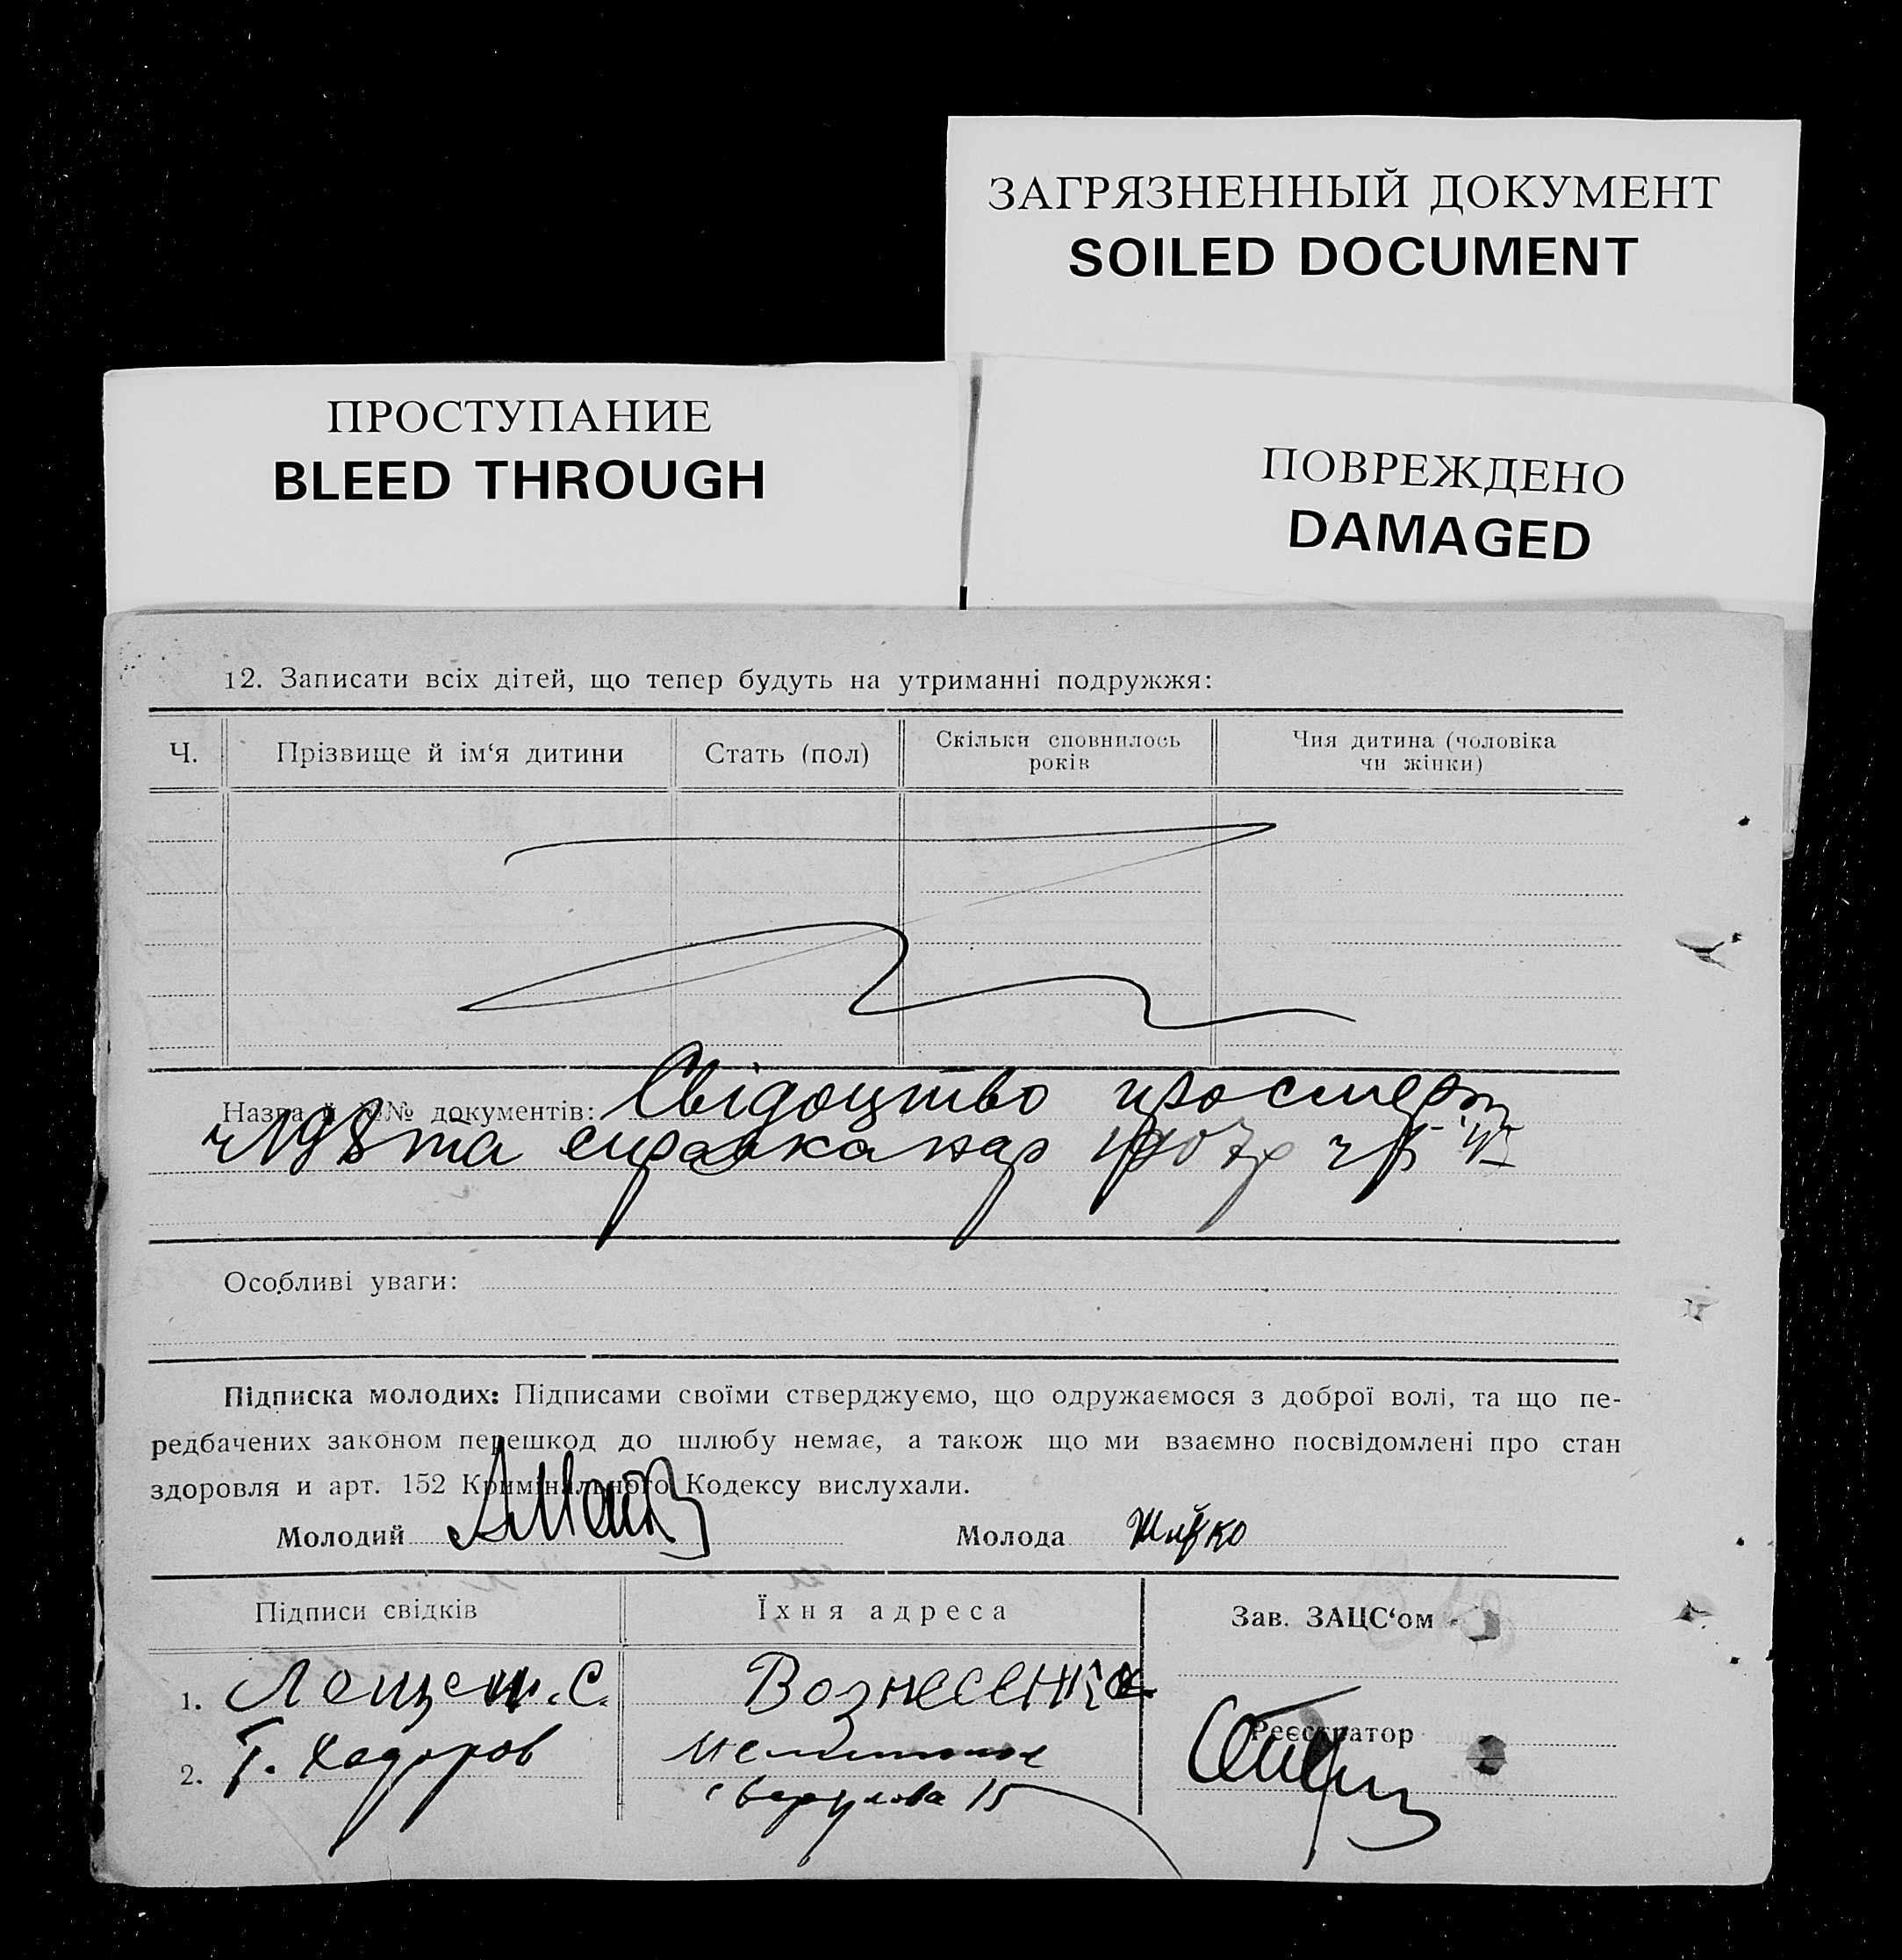 ЗАГРЯЗНЕННЫЙ ДОКУМЕНТ
SOILED DOCUMENT
ПРОСТУПАНИЕ
BLEED THROUGH
ПОВРЕЖДЕНО
DAMAGED
12. Записати всіх дітей, що тепер будуть на утриманні подружжя:
Ч. Прізвище й ім‘я дитини Стать (пол) Скільки сповнилось років Чия дитина (чоловіка чи жінки)
Назва й №№ документів: Свідоцтво про смерть
та справка нар
Особливі уваги:
Підписка молодих: Підписами своїми стверджуємо, що одружаємося з доброї волі, та що пе-
редбачених законом перешкод до шлюбу немає, а також що ми взаємно посвідомлені про стан
здоровля и арт. 152 Кримінального Кодексу вислухали.
Молодий Молода
Підписи свідків Їхня адреса Зав. ЗАЦС‘ом
1. С. Вознесенка
Реєстратор
2. Т. Ходоров Мелитополь
Свердлова 15